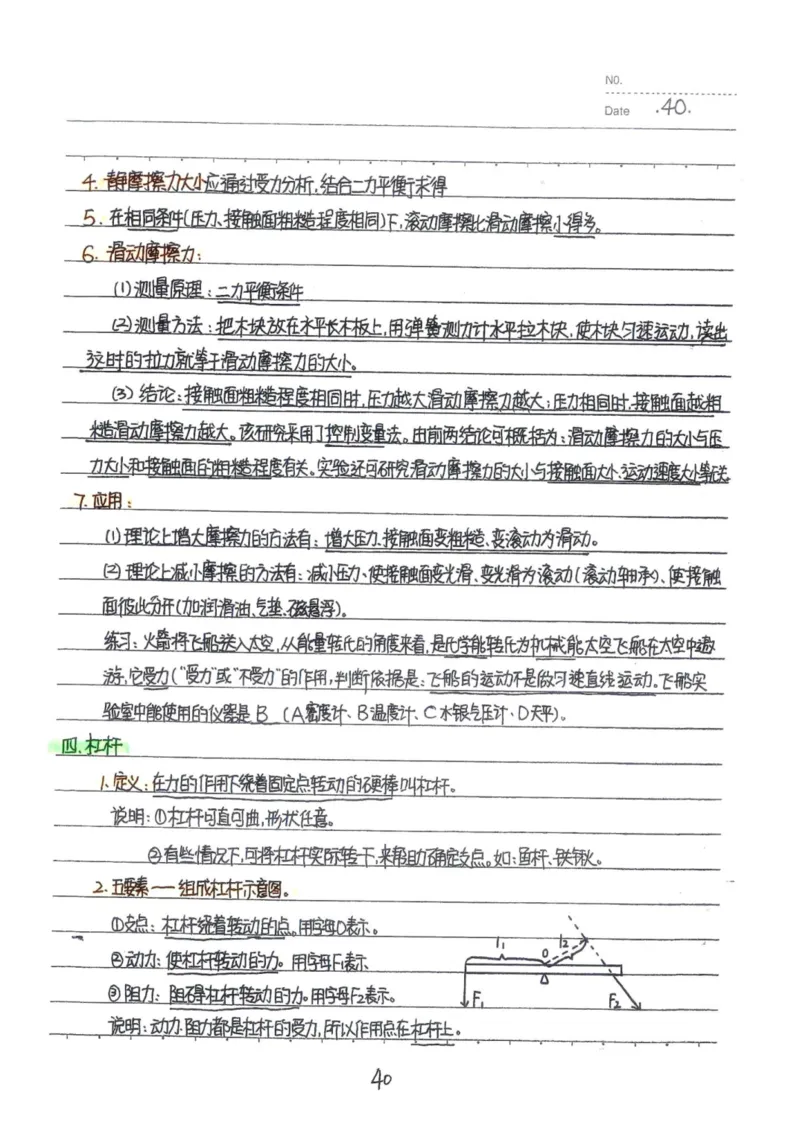 NO.
Date .40.
4. 静摩擦力大小应通过受力分析,结合二力平衡求得
5. 在相同条件(压力、接触面粗糙程度相同)下,滚动摩擦比滑动摩擦小得多。
6. 滑动摩擦力:
(1)测量原理:二力平衡条件
(2)测量方法:把木块放在水平长木板上,用弹簧测力计水平拉木块,使木块匀速运动,读出
这时的拉力就等于滑动摩擦力的大小。
(3)结论:接触面粗糙程度相同时,压力越大滑动摩擦力越大;压力相同时,接触面越粗
糙滑动摩擦力越大。该研究采用了控制变量法。由前两结论可概括为:滑动摩擦力的大小与压
力大小和接触面的粗糙程度有关。实验还可研究滑动摩擦力的大小与接触面大小、运动速度大小等无关
7. 应用:
(1)理论上增大摩擦力的方法有:增大压力、接触面变粗糙、变滚动为滑动。
(2)理论上减小摩擦的方法有:减小压力、使接触面变光滑、变光滑为滚动(滚动轴承)、使接触
面彼此分开(加润滑油、气垫、磁悬浮)。
练习:火箭将飞船送入太空,从能量转化的角度来看,是化学能转化为机械能太空飞船在太空中遨
游,它受力("受力"或"不受力"的作用,判断依据是:飞船的运动不是做匀速直线运动。飞船实
验室中能使用的仪器是 B (A密度计、B温度计、C水银气压计、D天平)。
四.杠杆
1. 定义:在力的作用下绕着固定点转动的硬棒叫杠杆。
说明:①杠杆可直可曲,形状任意。
②有些情况下,可将杠杆实际转一下,来帮助确定支点。如:鱼杆、铁锹。
2. 五要素——组成杠杆示意图。
①支点:杠杆绕着转动的点。用字母O表示。
②动力:使杠杆转动的力。用字母F₁表示
③阻力:阻碍杠杆转动的力。用字母F₂表示。
说明:动力、阻力都是杠杆的受力,所以作用点在杠杆上。
l₁ O l₂
F₁ F₂
40